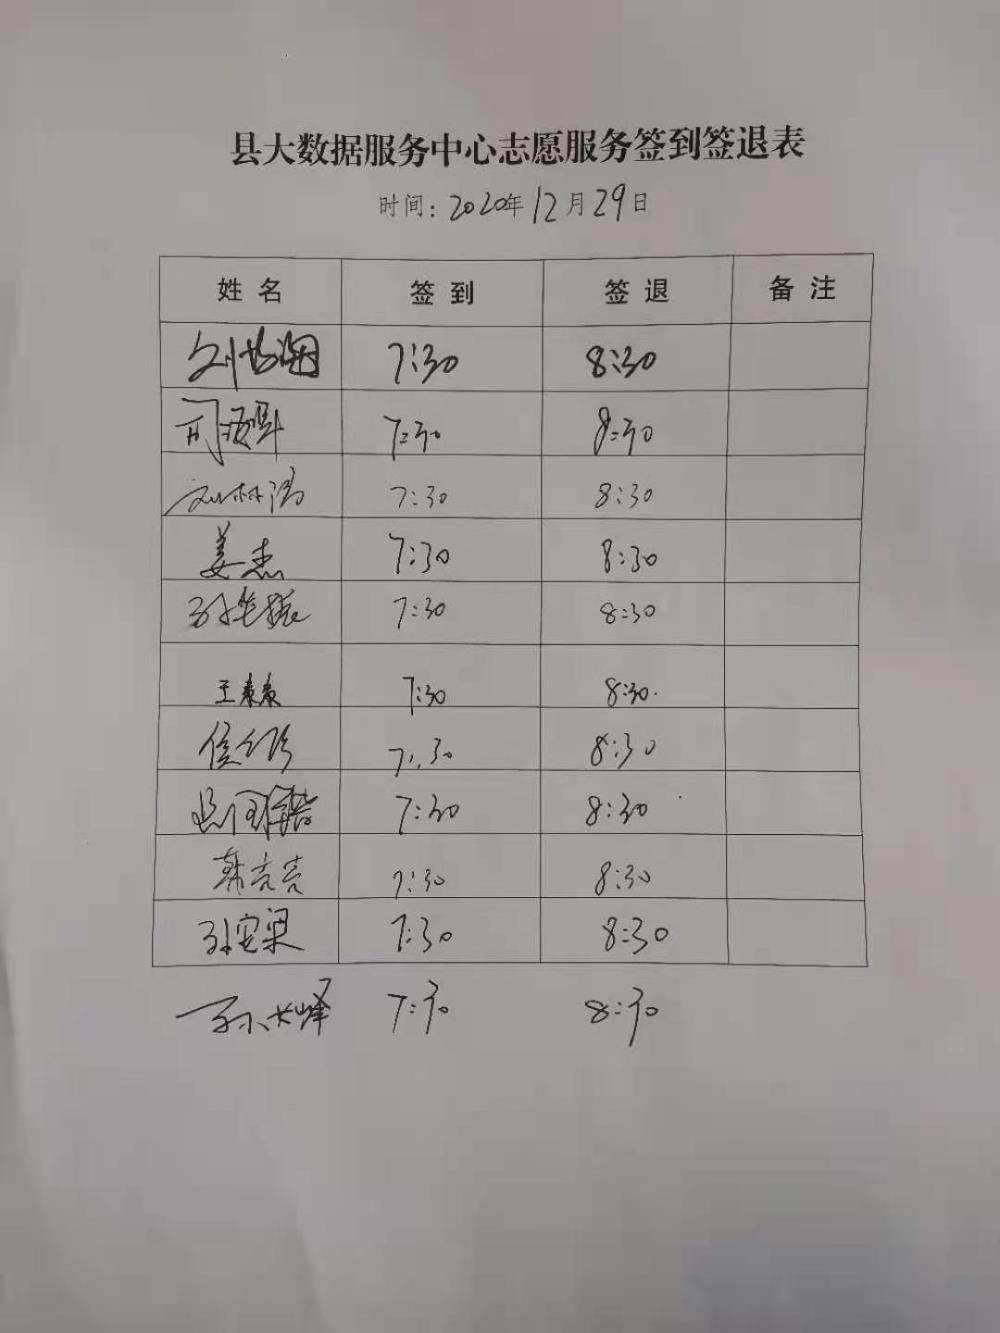 县大数据服务中心志愿服务签到签退表
时间：2020年12月29日
姓名 签到 签退 备注
7:30 8:30
7:30 8:30
刘林涛 7:30 8:30
姜杰 7:30 8:30
孙 7:30 8:30
王森森 7:30 8:30.
侯 7:30 8:30
7:30 8:30
韩亮亮 7:30 8:30
孙宝梁 7:30 8:30
孙长峰 7:30 8:30